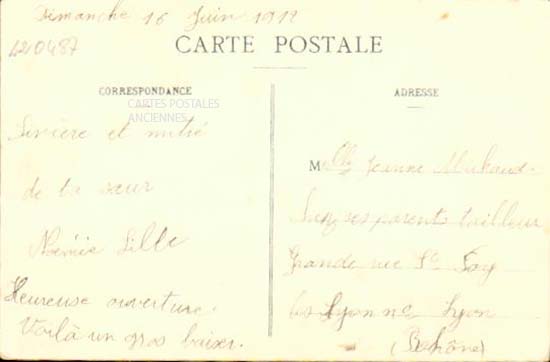 Dimanche 16 Juin 1912
420487
CARTE POSTALE
CORRESPONDANCE
CARTES POSTALES
ANCIENNES
et
de ta sœur
Noémie Lille
Heureuse ouverture.
Voilà un gros baiser.
ADRESSE
Mlle Jeanne
ses parents tailleur
Grande rue Ste Foy
les Lyon Lyon
(Rhône)